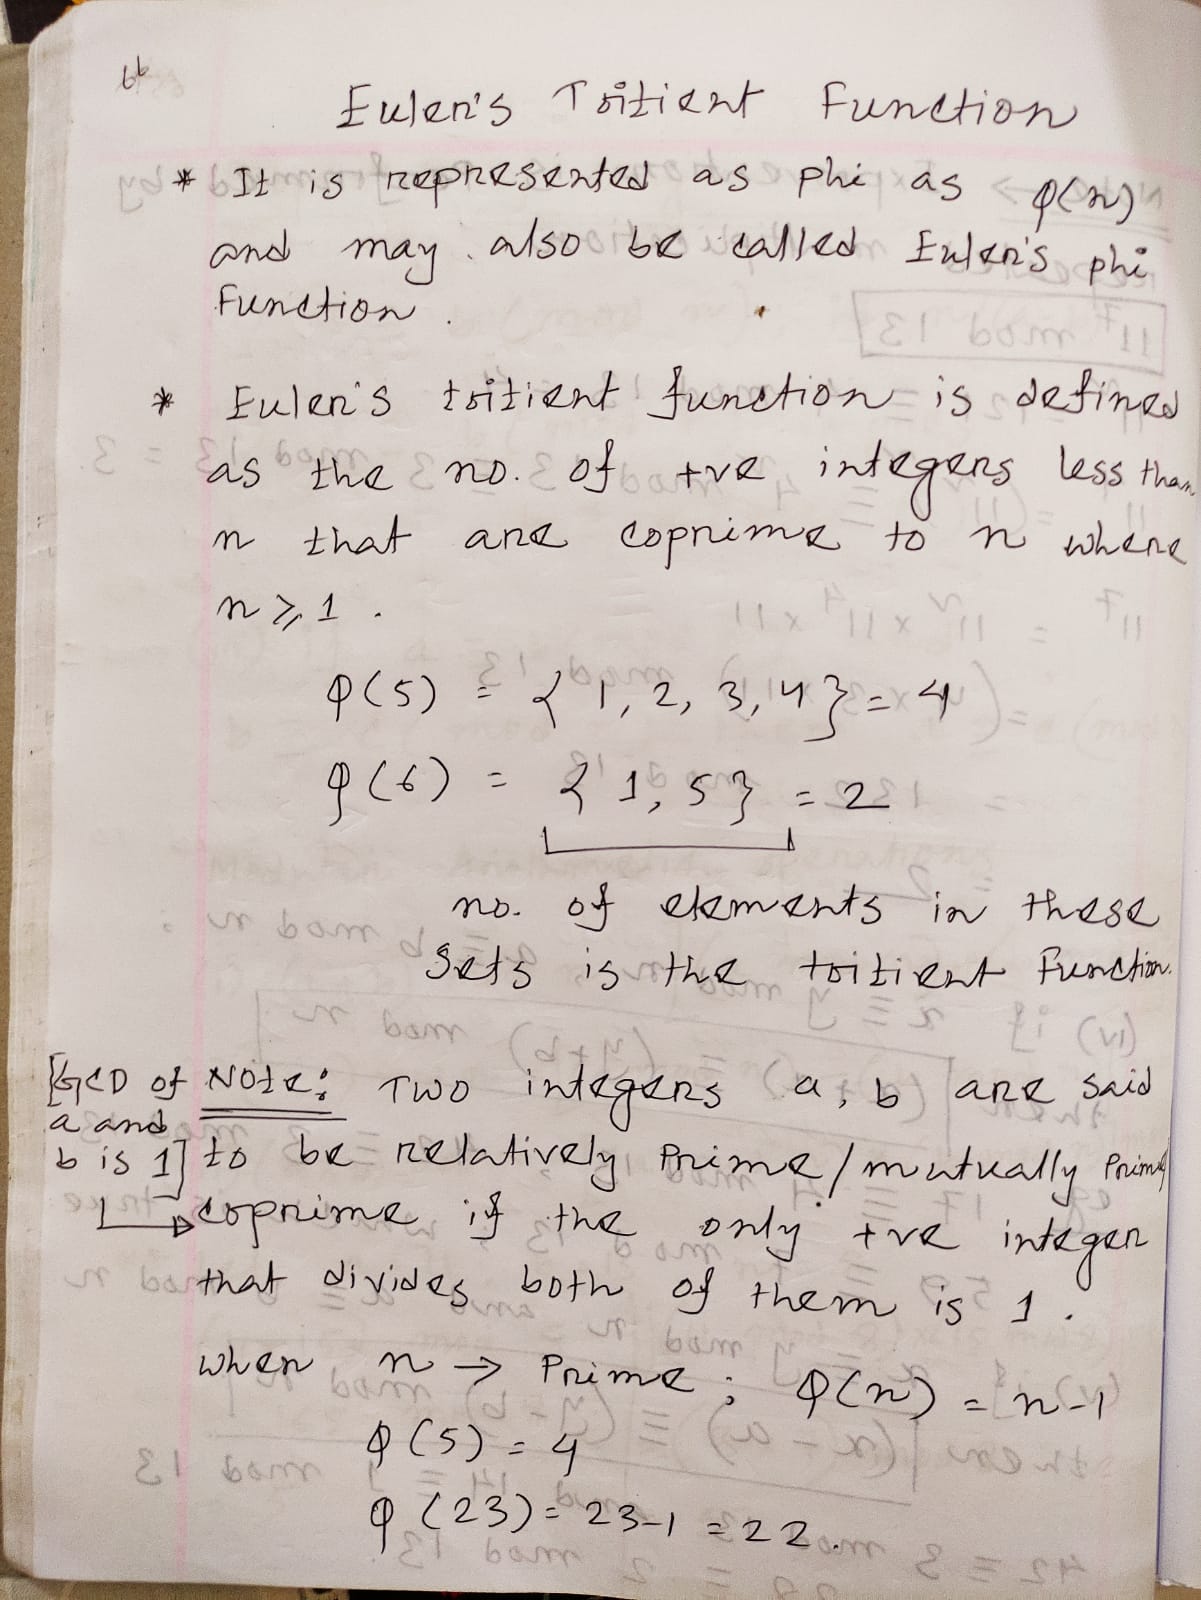 66
Euler's Toitient Function
* It is represented as phi as φ(n)
and may also be called Euler's phi
Function.
* Euler's toitient function is defined
as the no. of +ve integers less than
n that are coprime to n where
n ≥ 1.
φ(5) = {1, 2, 3, 4} = 4
φ(6) = {1, 5} = 2
no. of elements in these
Sets is the toitient Function.
[GCD of a and b is 1]
Note: Two integers a, b are said
to be relatively Prime/mutually Prime/
coprime if the only +ve integer
that divides both of them is 1.
when n → Prime; φ(n) = n-1
φ(5) = 4
φ(23) = 23-1 = 22.